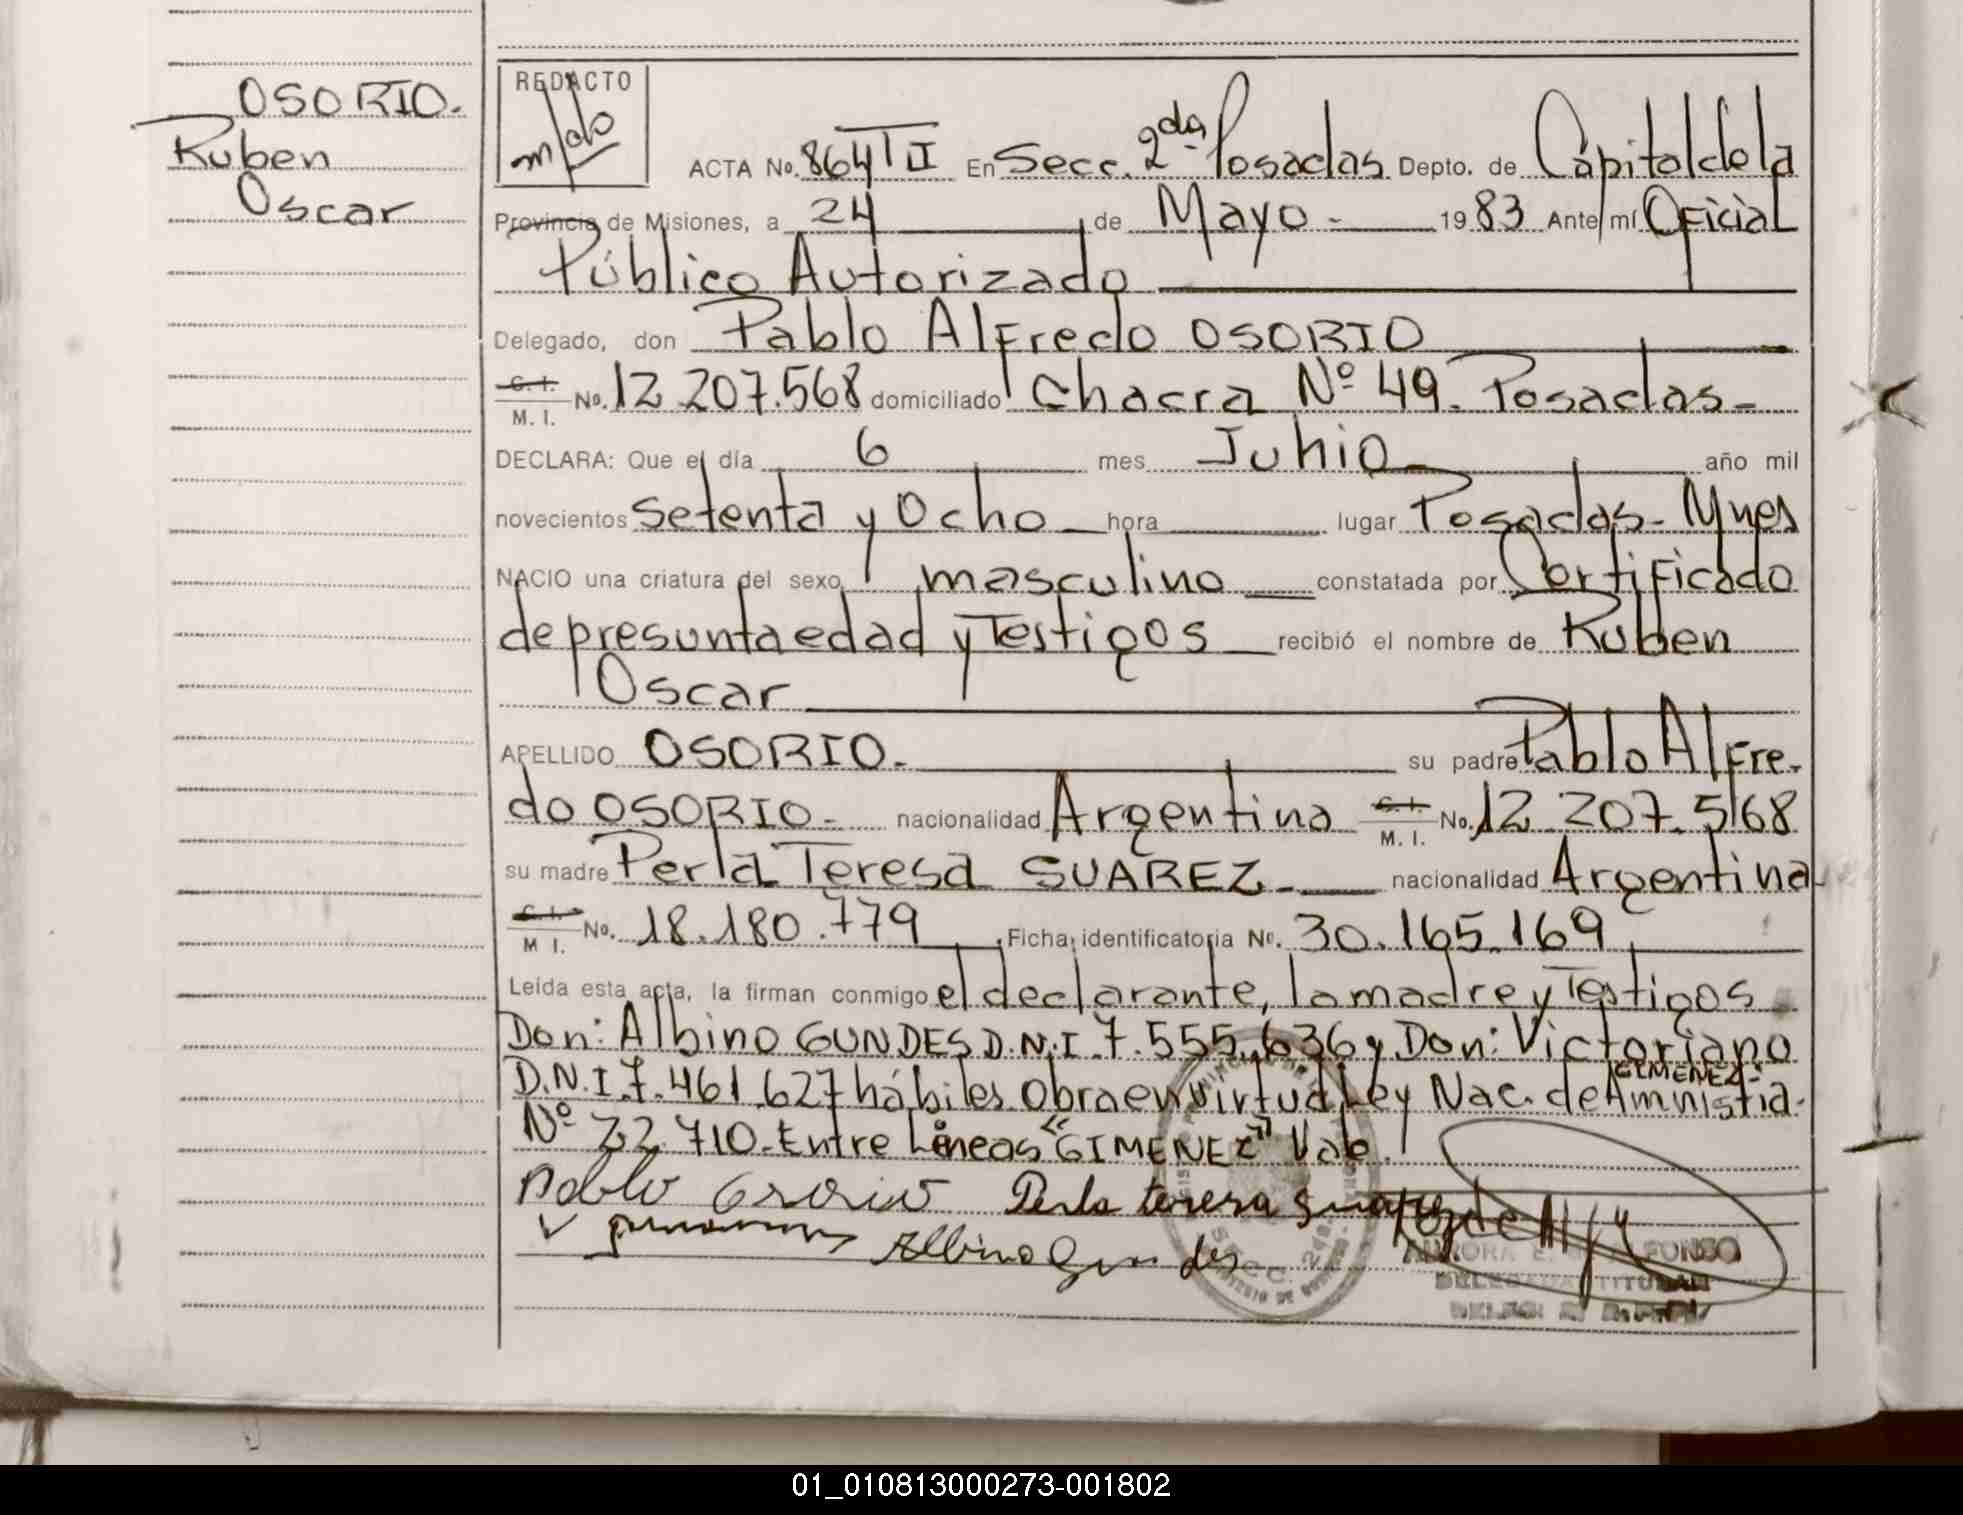 OSORIO.
Ruben
Oscar
REDACTO
ACTA No. 864 T II En Secc. 2da. Posadas Depto. de Capital de la
Provincia de Misiones, a 24 de Mayo - 1983 Ante mí Oficial
Público Autorizado
Delegado, don Pablo Alfredo OSORIO
C. I.
M. I. No. 12.207.568 domiciliado Chacra Nº 49. Posadas-
DECLARA: Que el día 6 mes Junio año mil
novecientos setenta y Ocho hora lugar Posadas- Mnes
NACIO una criatura del sexo masculino constatada por Certificado
de presunta edad y Testigos recibió el nombre de Ruben
Oscar
APELLIDO OSORIO.- su padre Pablo Alfre-
do OSORIO.- nacionalidad Argentina C. I. M. I. No. 12.207.568
su madre Perla Teresa SUAREZ- nacionalidad Argentina
C. I. M I. No. 18.180.779 Ficha identificatoria No. 30.165.169
Leída esta acta, la firman conmigo el declarante, la madre y Testigos
Don: Albino GUNDES D.N.I. 7.555.636 y Don: Victoriano
GIMENEZ-
D.N.I. 7.461.627 hábiles. Obra en virtud Ley Nac. de Amnistia.
Nº 22.710.- Entre Líneas "GIMENEZ" Vale.
Pablo Osorio Perla teresa Suarez
Albino Gundes
AURORA E. FONSO
DELEGADA TITULAR
SECC. 2da
01_010813000273-001802